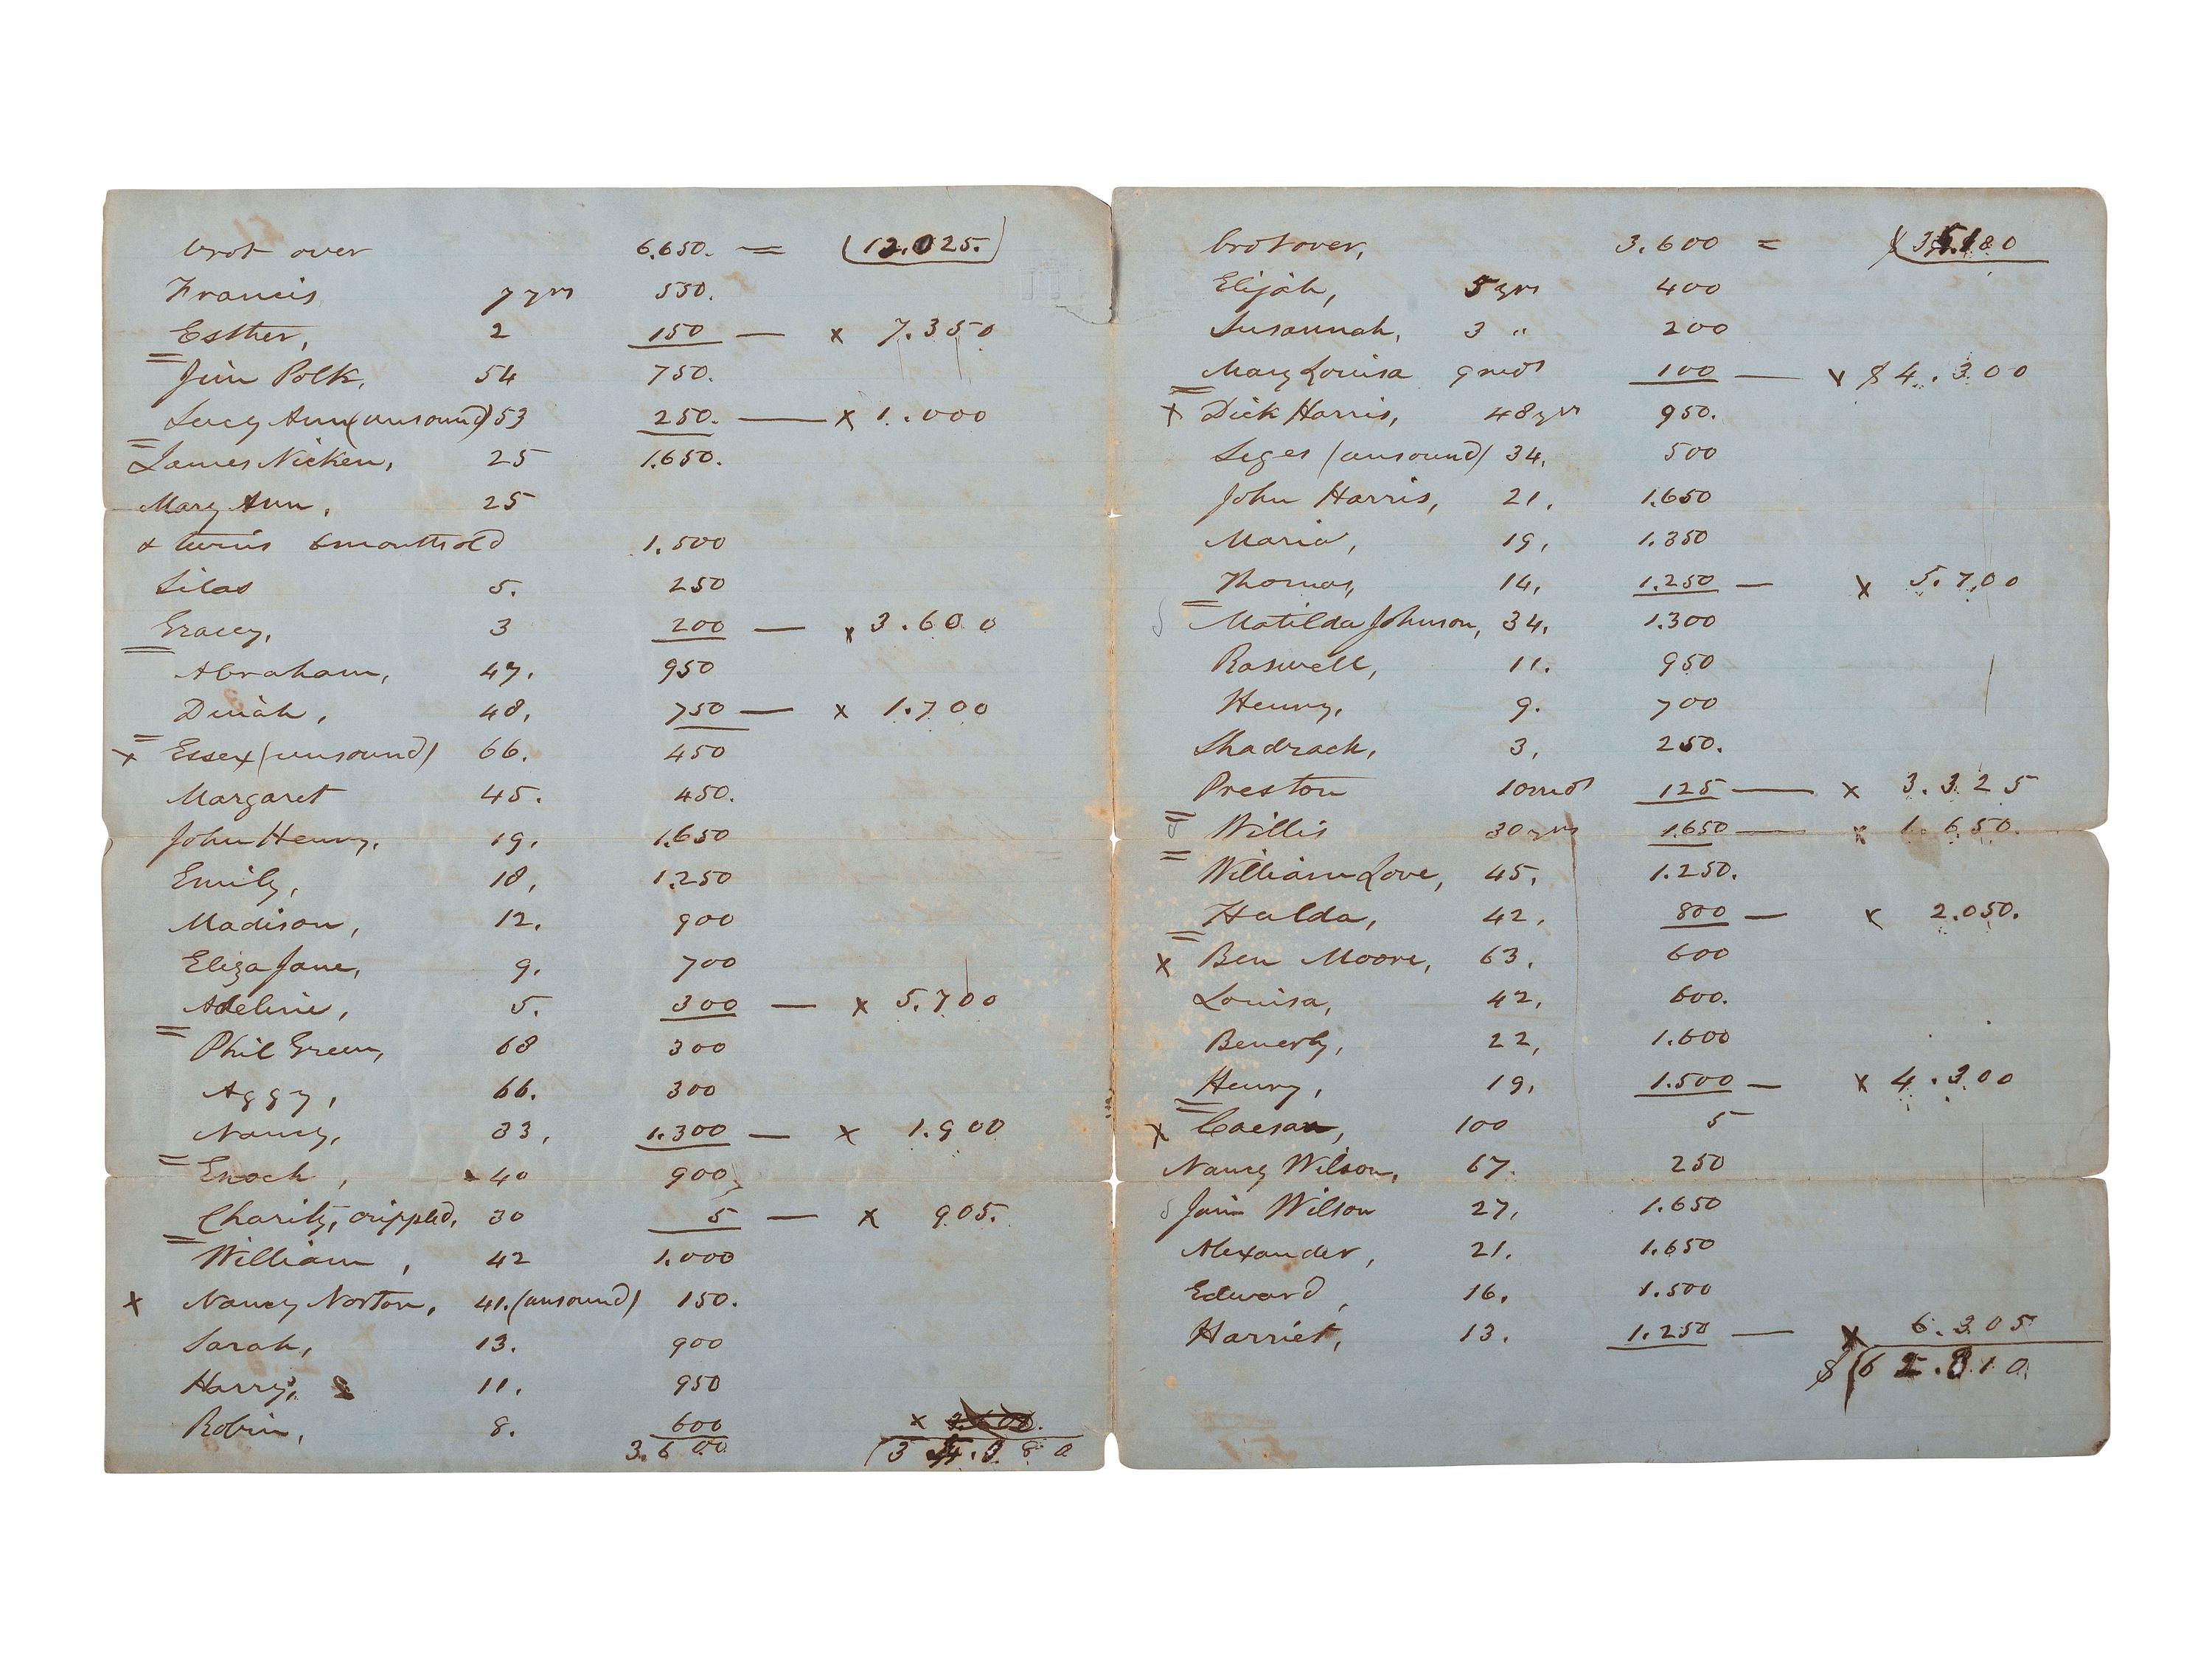 brot over 6.650. = (12.025.)
Francis 7 yrs 550.
Esther, 2 150 — x 7.350
Jim Polk, 54 750.
Lucy Ann (unsound) 53 250. — x 1.000
James Nicken, 25 1.650.
Mary Ann, 25
& twins 6 months old 1.500
Silas 5. 250
Gracey, 3 200 — x 3.600
Abraham, 47. 950
Dinah, 48, 750 — x 1.700
x Essex (unsound) 66. 450
Margaret 45. 450.
John Henry, 19, 1.650
Emily, 18, 1.250
Madison, 12. 900
Eliza Jane, 9. 700
Adeline, 5. 300 — x 5.700
Phil Green, 68 300
Aggy, 66. 300
Nancy, 33, 1.300 — x 1.900
Enoch, 40 900
Charity, crippled, 30 5 — x 905.
William, 42 1.000
x Nancy Norton, 41. (unsound) 150.
Sarah, 13. 900
Harry, 11. 950
Robin, 8. 600 x
3.600
brot over, 3.600 =
Elijah, 5 yrs 400
Susannah, 3 " 200
Mary Louisa 9 mos 100 — x $4.300
x Dick Harris, 48 yrs 950.
Leges (unsound) 34, 500
John Harris, 21, 1.650
Maria, 19, 1.350
Thomas, 14, 1.250 — x 5.700
Matilda Johnson, 34, 1.300
Roswell, 11. 950
Henry, 9. 700
Shadrack, 3, 250.
Preston 10 mos 125 — x 3.325
Willis 30 yrs 1.650 — x 1.650.
William Love, 45, 1.250.
Hulda, 42, 800 — x 2.050.
x Ben Moore, 63, 600
Louisa, 42, 600.
Beverly, 22, 1.600
Henry, 19, 1.500 — x 4.300
x Caesar, 100 5
Nancy Wilson, 67. 250
Jim Wilson 27, 1.650
Alexander, 21. 1.650
Edward, 16, 1.500
Harriet, 13. 1.250 — x 6.305